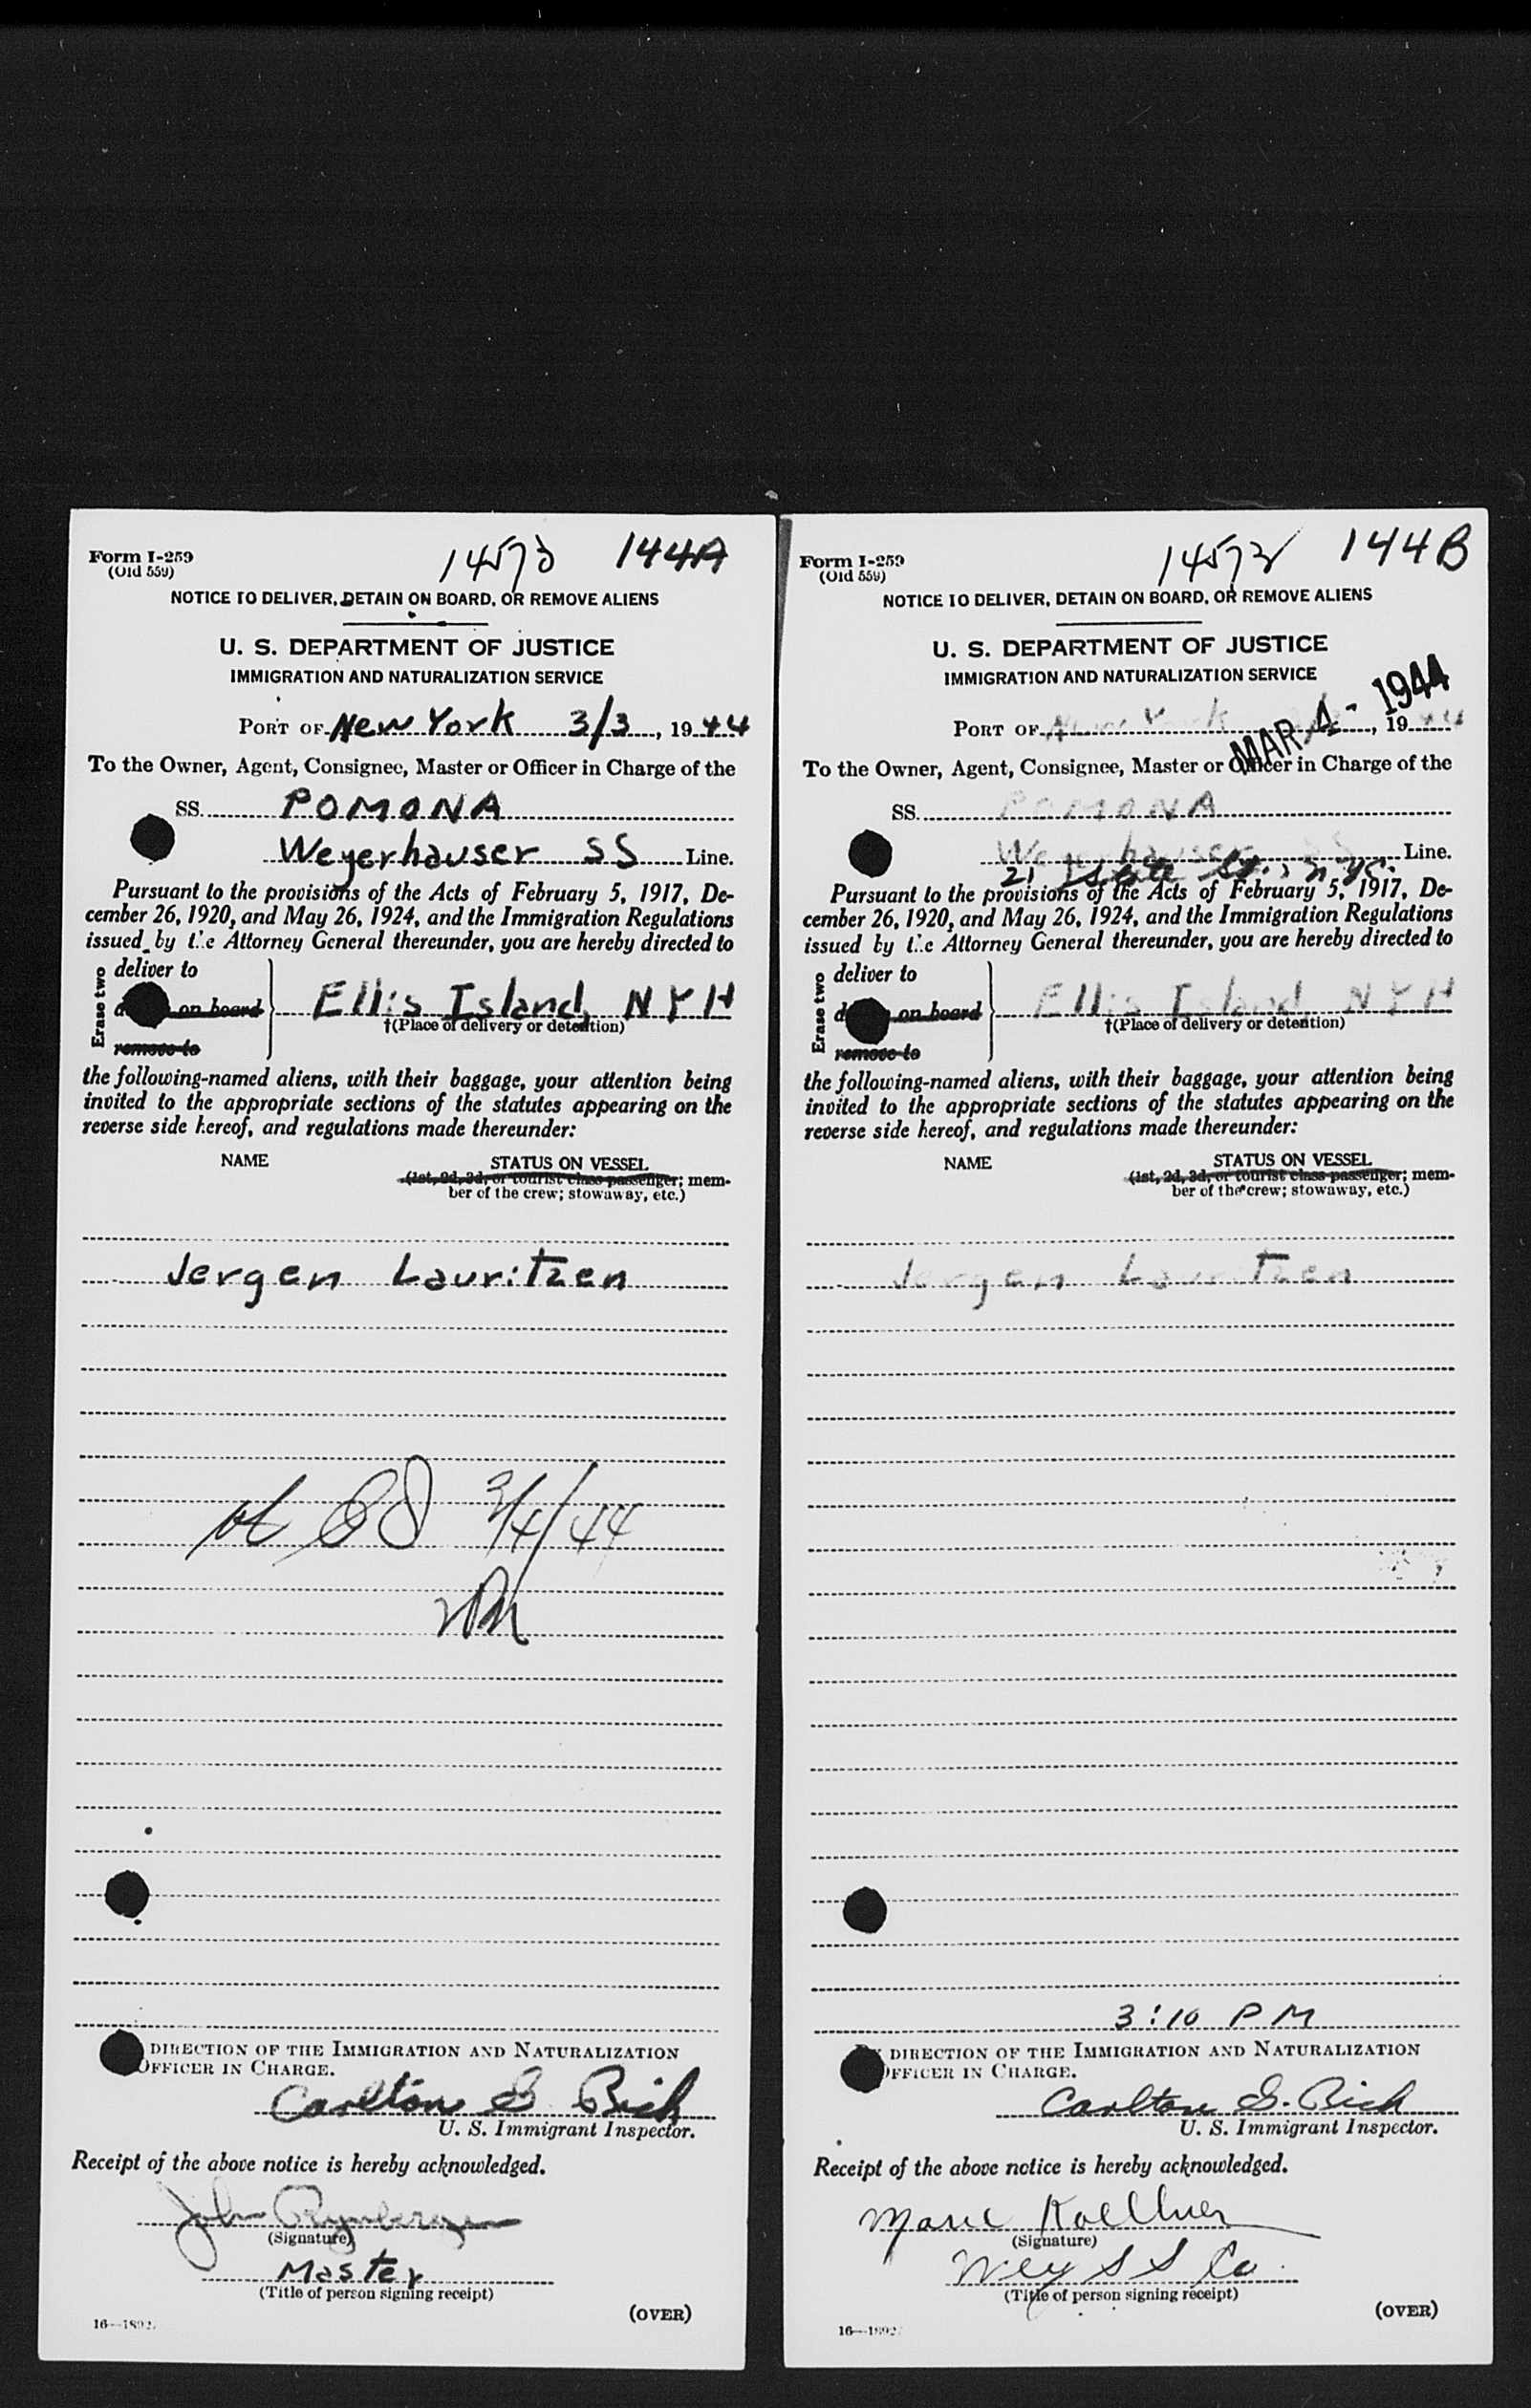 Form I-259
(Old 559)
14573 144A
NOTICE TO DELIVER, DETAIN ON BOARD, OR REMOVE ALIENS
U. S. DEPARTMENT OF JUSTICE
IMMIGRATION AND NATURALIZATION SERVICE
PORT OF New York 3/3, 1944
To the Owner, Agent, Consignee, Master or Officer in Charge of the
SS. POMONA
Weyerhauser SS Line.
Pursuant to the provisions of the Acts of February 5, 1917, De-
cember 26, 1920, and May 26, 1924, and the Immigration Regulations
issued by the Attorney General thereunder, you are hereby directed to
Erase two
deliver to
on board
remove to
Ellis Island, NYH
†(Place of delivery or detention)
the following-named aliens, with their baggage, your attention being
invited to the appropriate sections of the statutes appearing on the
reverse side hereof, and regulations made thereunder:
NAME STATUS ON VESSEL
(1st, 2d, 3d, or tourist class passenger; mem-
ber of the crew; stowaway, etc.)
Jergen Lauritzen
3/4/44
DIRECTION OF THE IMMIGRATION AND NATURALIZATION
OFFICER IN CHARGE.
Carlton G. Rich
U. S. Immigrant Inspector.
Receipt of the above notice is hereby acknowledged.
John
(Signature)
Master
(Title of person signing receipt)
(OVER)
Form I-259
(Old 559)
14572 144B
NOTICE TO DELIVER, DETAIN ON BOARD, OR REMOVE ALIENS
U. S. DEPARTMENT OF JUSTICE
IMMIGRATION AND NATURALIZATION SERVICE
MAR 4 - 1944
PORT OF New York, 1944
To the Owner, Agent, Consignee, Master or Officer in Charge of the
SS. POMONA
Weyerhauser SS Line.
21 State St., N.Y.C.
Pursuant to the provisions of the Acts of February 5, 1917, De-
cember 26, 1920, and May 26, 1924, and the Immigration Regulations
issued by the Attorney General thereunder, you are hereby directed to
Erase two
deliver to
on board
remove to
Ellis Island, NYH
†(Place of delivery or detention)
the following-named aliens, with their baggage, your attention being
invited to the appropriate sections of the statutes appearing on the
reverse side hereof, and regulations made thereunder:
NAME STATUS ON VESSEL
(1st, 2d, 3d, or tourist class passenger; mem-
ber of the crew; stowaway, etc.)
Jergen Lauritzen
3:10 PM
DIRECTION OF THE IMMIGRATION AND NATURALIZATION
OFFICER IN CHARGE.
Carlton G. Rich
U. S. Immigrant Inspector.
Receipt of the above notice is hereby acknowledged.
Marie Koellner
(Signature)
Wey S S Co.
(Title of person signing receipt)
(OVER)